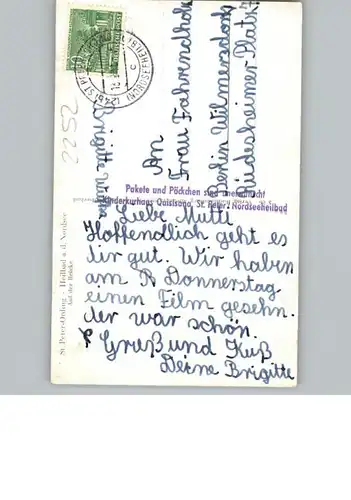 (24b) ST. PETER
(NORDSEEHEILBAD)
c
2252
An
Frau Fahrendholz
Berlin Wilmersdorf
Rüdesheimer Platz
Brigitte
Pakete und Päckchen sind unerwünscht
Kinderkurhaus Goldene St. Peter / Nordseeheilbad
Liebe Mutti
Hoffendlich geht es
dir gut. Wir haben
am Donnerstag
einen Film gesehn.
der war schön.
Gruß und Kuß
Deine Brigitte
St. Peter-Ording - Heilbad a. d. Nordsee
Auf der Brücke